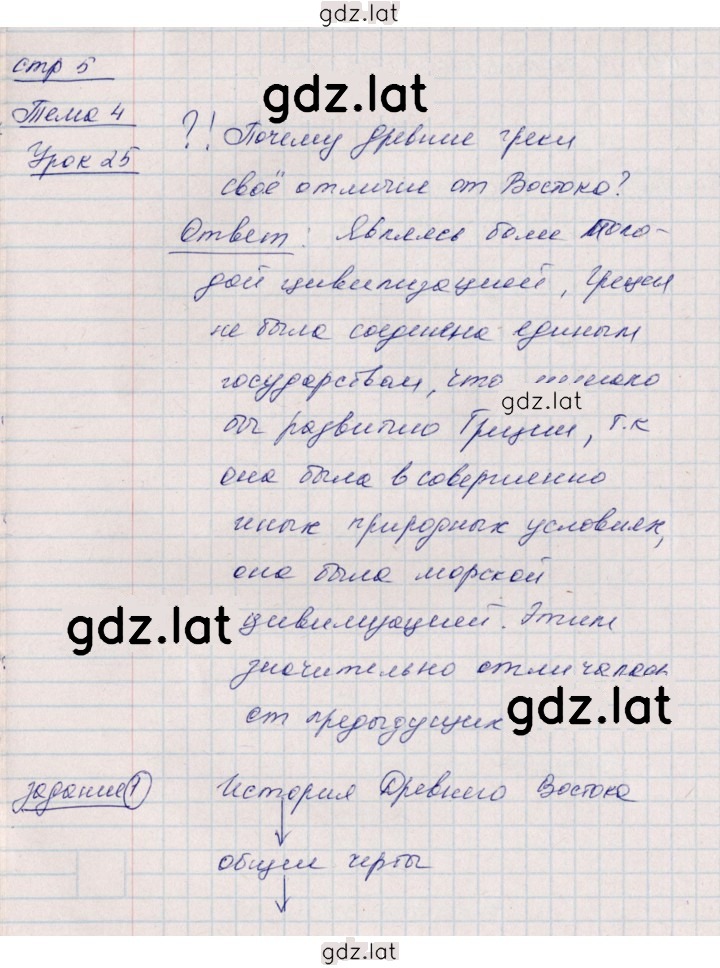 gdz.lat
стр 5
gdz.lat
Тема 4
?! Почему древние греки
Урок 25
своё отличие от Востока?
Ответ: Являясь более моло-
дой цивилизацией, Греция
не была соединена единым
государством, что
gdz.lat
бы развитию Греции, т.к
она была в совершенно
иных природных условиях,
она была морской
gdz.lat
цивилизацией. Этим
значительно отличалась
от предыдущих
gdz.lat
задание 1
История Древнего Востока
↓
общие черты
↓
gdz.lat